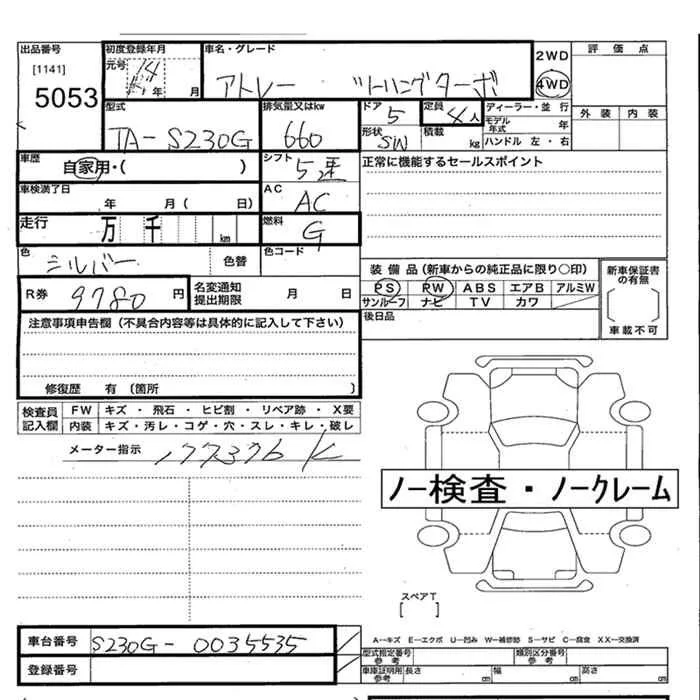 出品番号 初度登録年月 車名・グレード 2WD 評価点
[1141] 元号 14 年 月 アトレー ツーリングターボ 4WD
5053 型式 排気量又はkw ドア 5 定員 4人 ディーラー・並行 外装 内装
TA-S230G 660 形状 SW 積載 kg モデル年式 年
ハンドル 左・右
車歴 自家用・( ) シフト 5速 正常に機能するセールスポイント
車検満了日 年 月 ( 日) AC AC
走行 万 千 km 燃料 G
色 シルバー 色替 色コード
装備品(新車からの純正品に限り○印) 新車保証書の有無
R券 9780 円 名変通知提出期限 月 日 PS PW ABS エアB アルミW
サンルーフ ナビ TV カワ 車載不可
注意事項申告欄(不具合内容等は具体的に記入して下さい) 後日品
修復歴 有(箇所 )
検査員記入欄 FW キズ・飛石・ヒビ割・リペア跡・X要
内装 キズ・汚レ・コゲ・穴・スレ・キレ・破レ
メーター指示 177376 K
ノー検査・ノークレーム
スペアT
[ ]
A-キズ E-エクボ U-凹み W-補修跡 S-サビ C-腐食 XX-交換済
車台番号 S230G-0035535 型式指定番号 参考 類別区分番号 参考
登録番号 車庫証明用 参考 長さ cm 幅 cm 高さ cm